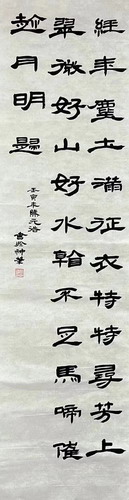 經年塵土滿征衣特特尋芳上
翠微好山好水看不足馬蹄催
趁月明歸
壬寅年陳元浩